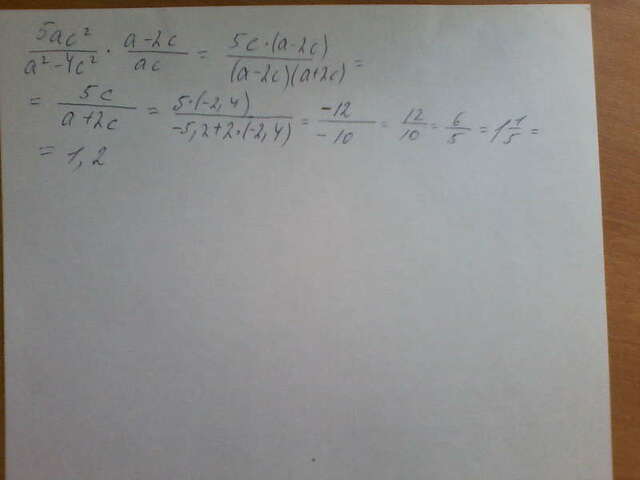 5ac²/(a²-4c²) · (a-2c)/(ac) = (5c·(a-2c))/((a-2c)(a+2c)) =
= 5c/(a+2c) = (5·(-2,4))/(-5,2+2·(-2,4)) = (-12)/(-10) = 12/10 = 6/5 = 1 1/5 =
= 1,2